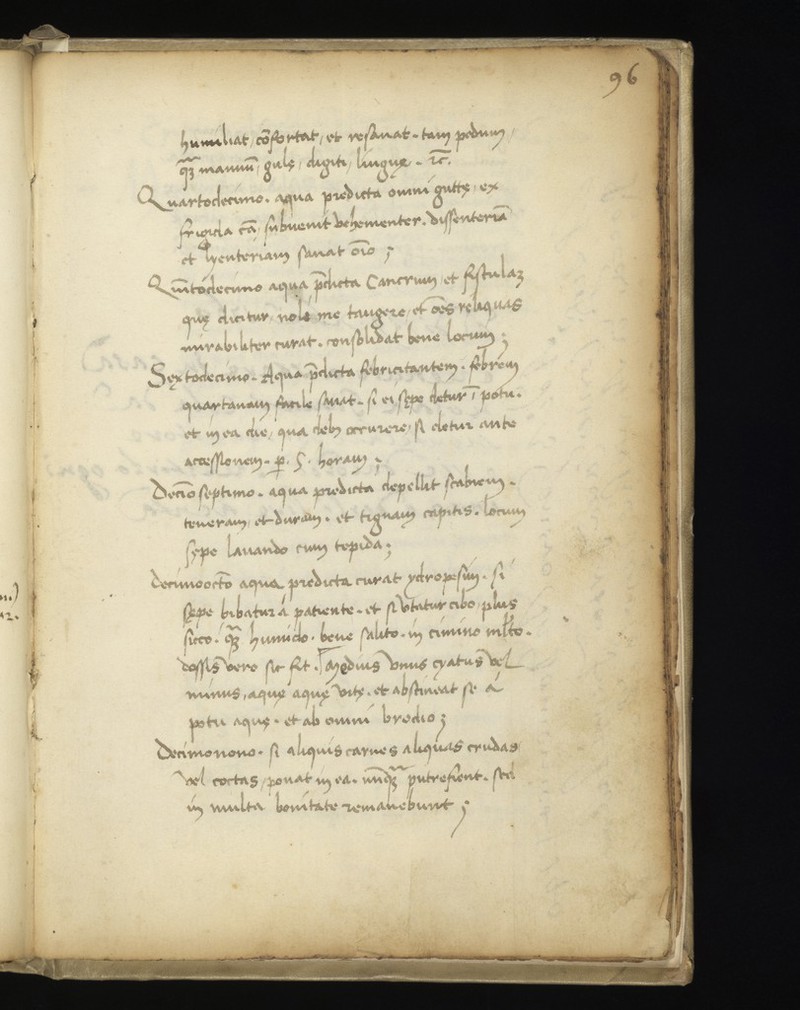 96
humiliat, cõfortat, et resanat. tam pedum,
q̃ȝ manuũ, gulę, digiti, linguę. ⁊c̃.
Quartodecimo. aqua predicta omni guttę, ex
frigida cã, subuenit vehementer. dissenteriã
et lyenteriam sanat oĩo ;
Quĩtodecimo aqua p̃dicta Cancrum, et fistulaȝ
quę dicitur, noli me tangere, et oẽs reliquas
mirabiliter curat. consolidat bene locum ;
Sextodecimo. Aqua p̃dicta febricitantem. febrem
quartanam facile sanat. si ei sępe detur ĩ potu.
et in ea die, qua debȝ occurrere, si detur ante
accessionem. p̱. horam ;
Decĩoseptimo. aqua predicta depellit scabiem.
teneram, et duram. et tignam capitis. locum
sępe lauando cum tepida ;
Decimoocto aqua predicta curat ydropesim. si
sępe bibatur á patiente. et si vtatur cibo, plus
sicco. q̃ȝ humido. bene salito. in cimino ml̃to.
dossis vero sic fit. medius vnus cyatus vel
minus, aquę aquę vitę. et abstineat se á
potu aquę. et ab omni brodio ;
Decimonono. si aliquis carnes aliquas crudas
vel coctas, ponat in ea. nũq̃ȝ putrefient. sed
in multa bonitate remanebunt ;